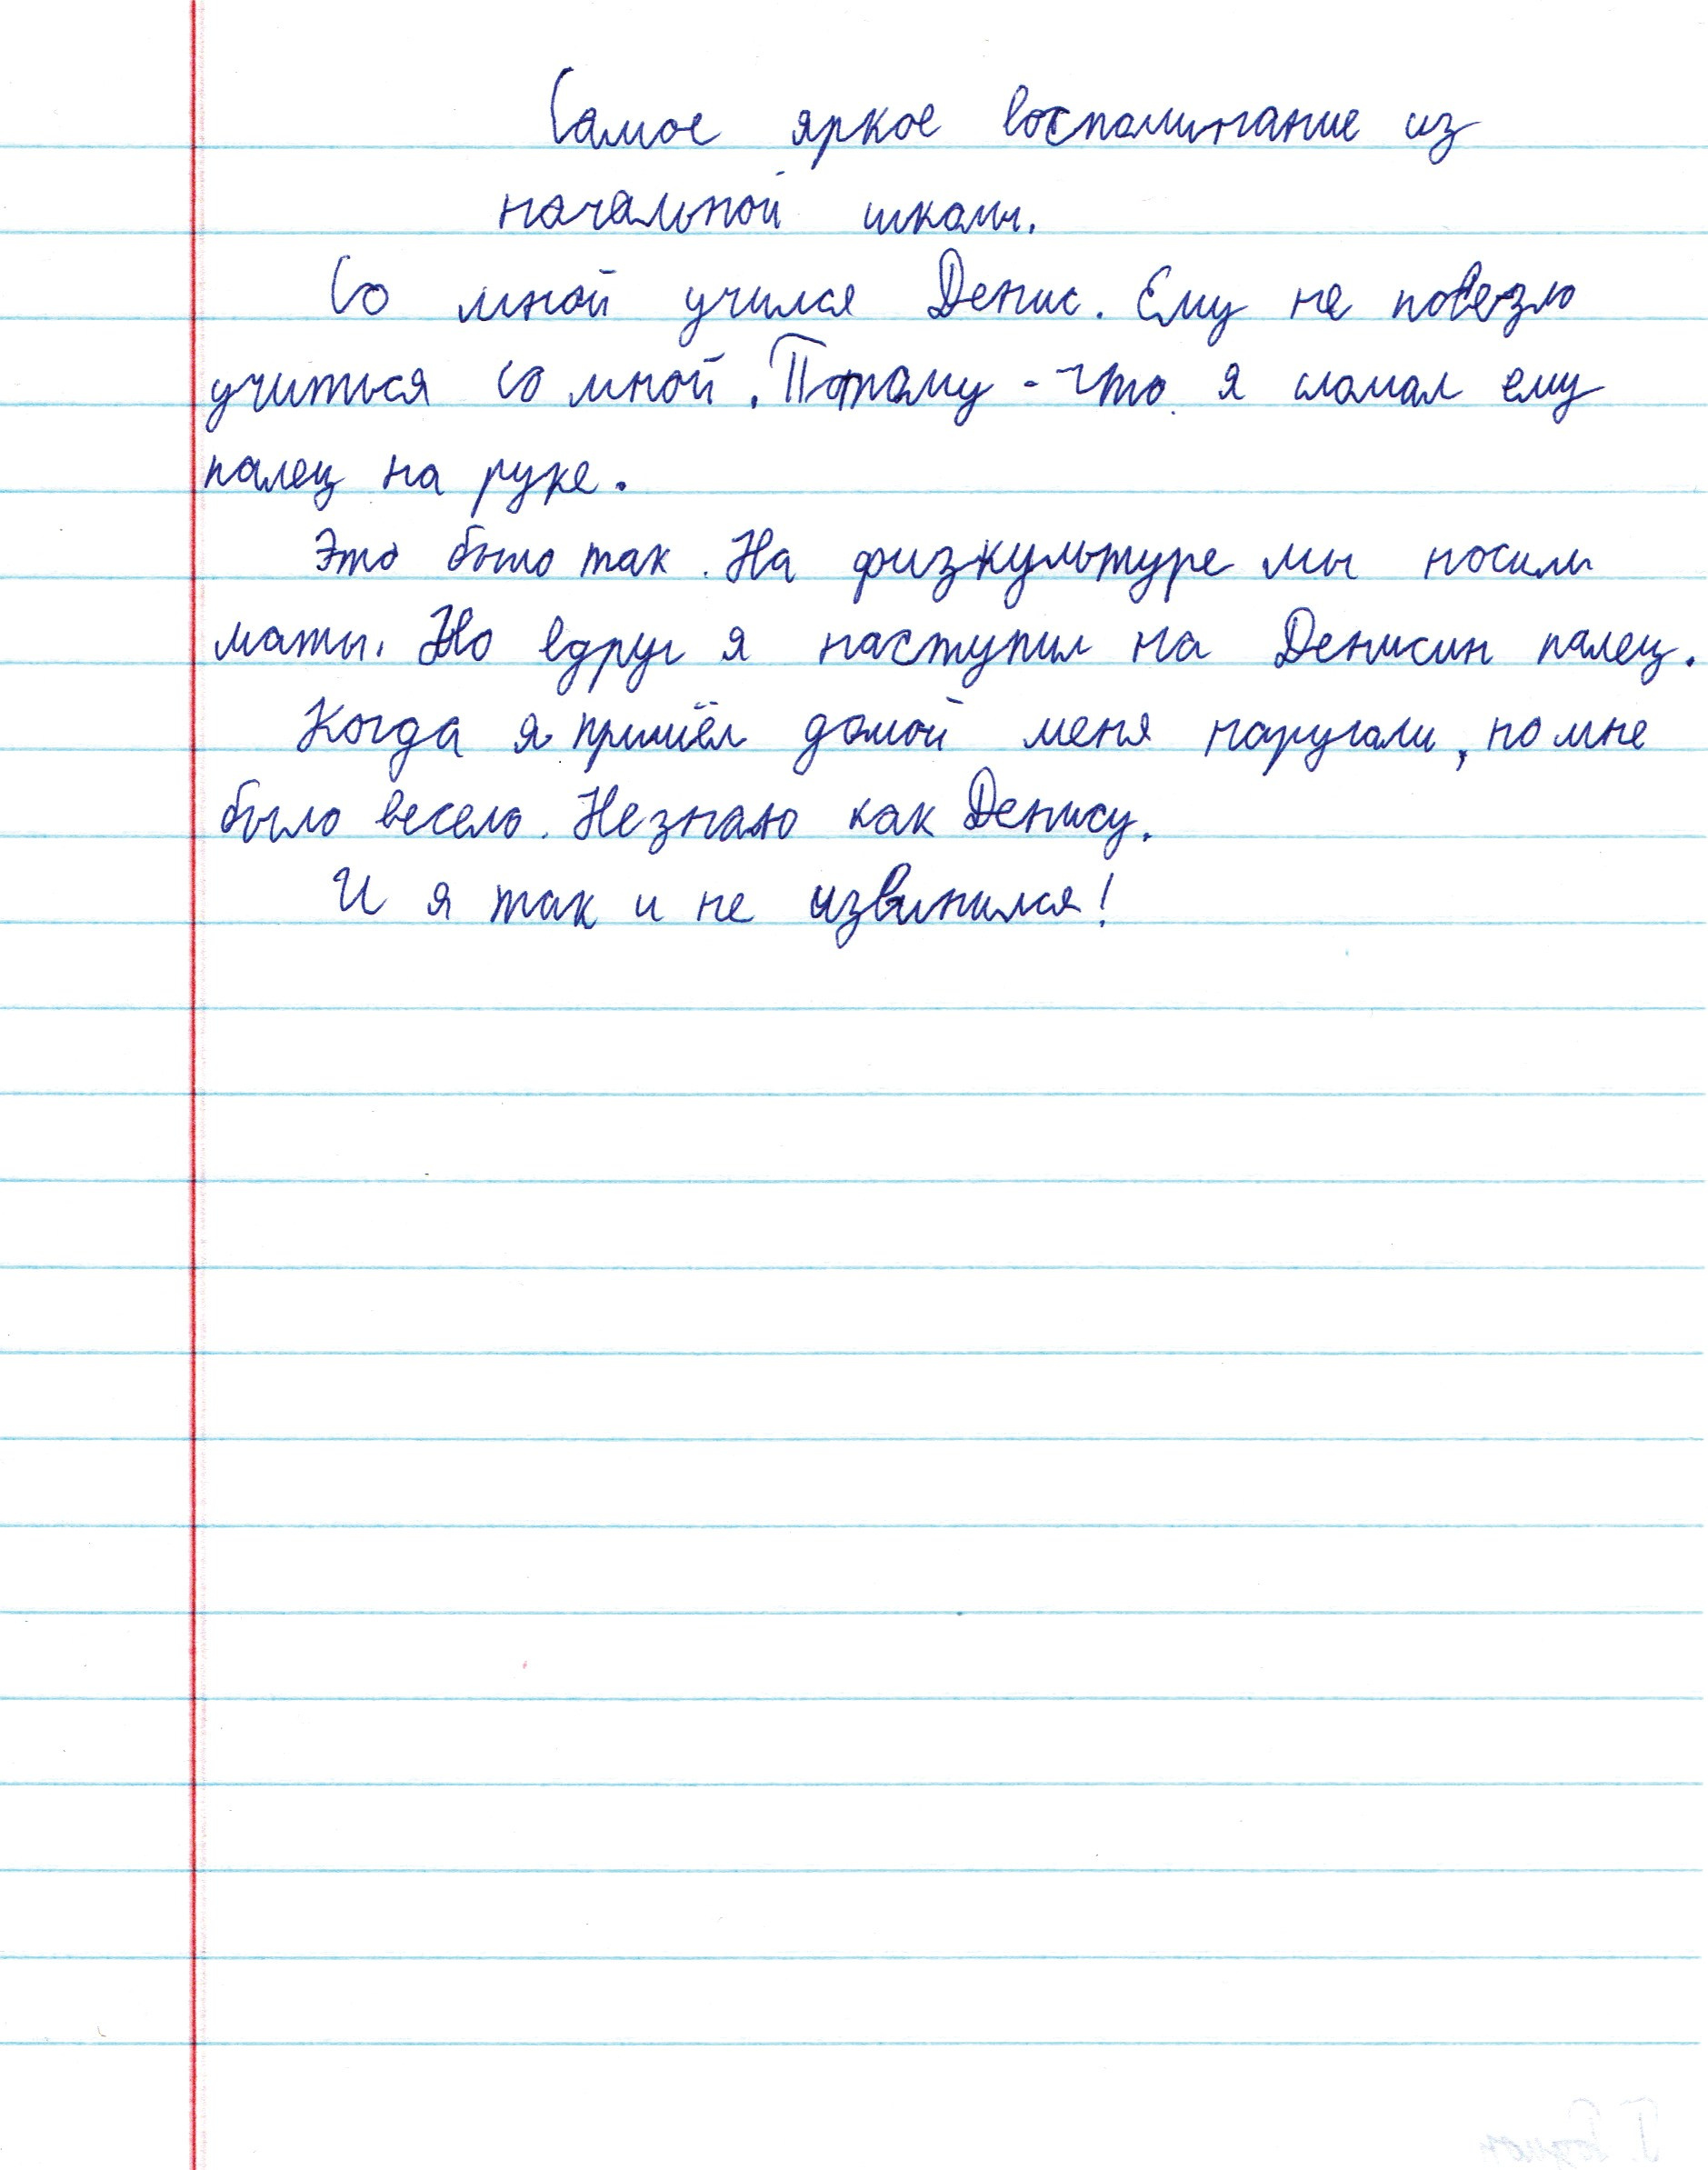 Самое яркое воспоминание из
начальной школы.
Со мной учился Денис. Ему не повезло
учиться со мной. Потому - что я сломал ему
палец на руке.
Это было так. На физкультуре мы носили
маты. Но вдруг я наступил на Денисин палец.
Когда я пришёл домой меня наругали, но мне
было весело. Незнаю как Денису.
И я так и не извинился!